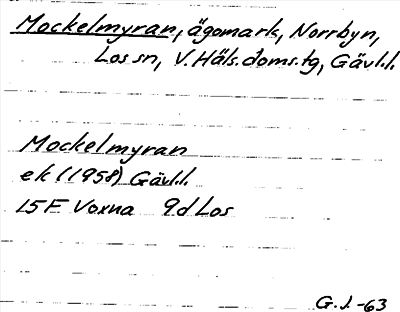 Mockelmyran, ägomark, Norrbyn,
Los sn, V. Häls. doms. tg, Gävl.l.
Mockelmyran
ek (1958) Gävl.l.
15F Voxna 9d Los
G.J.-63